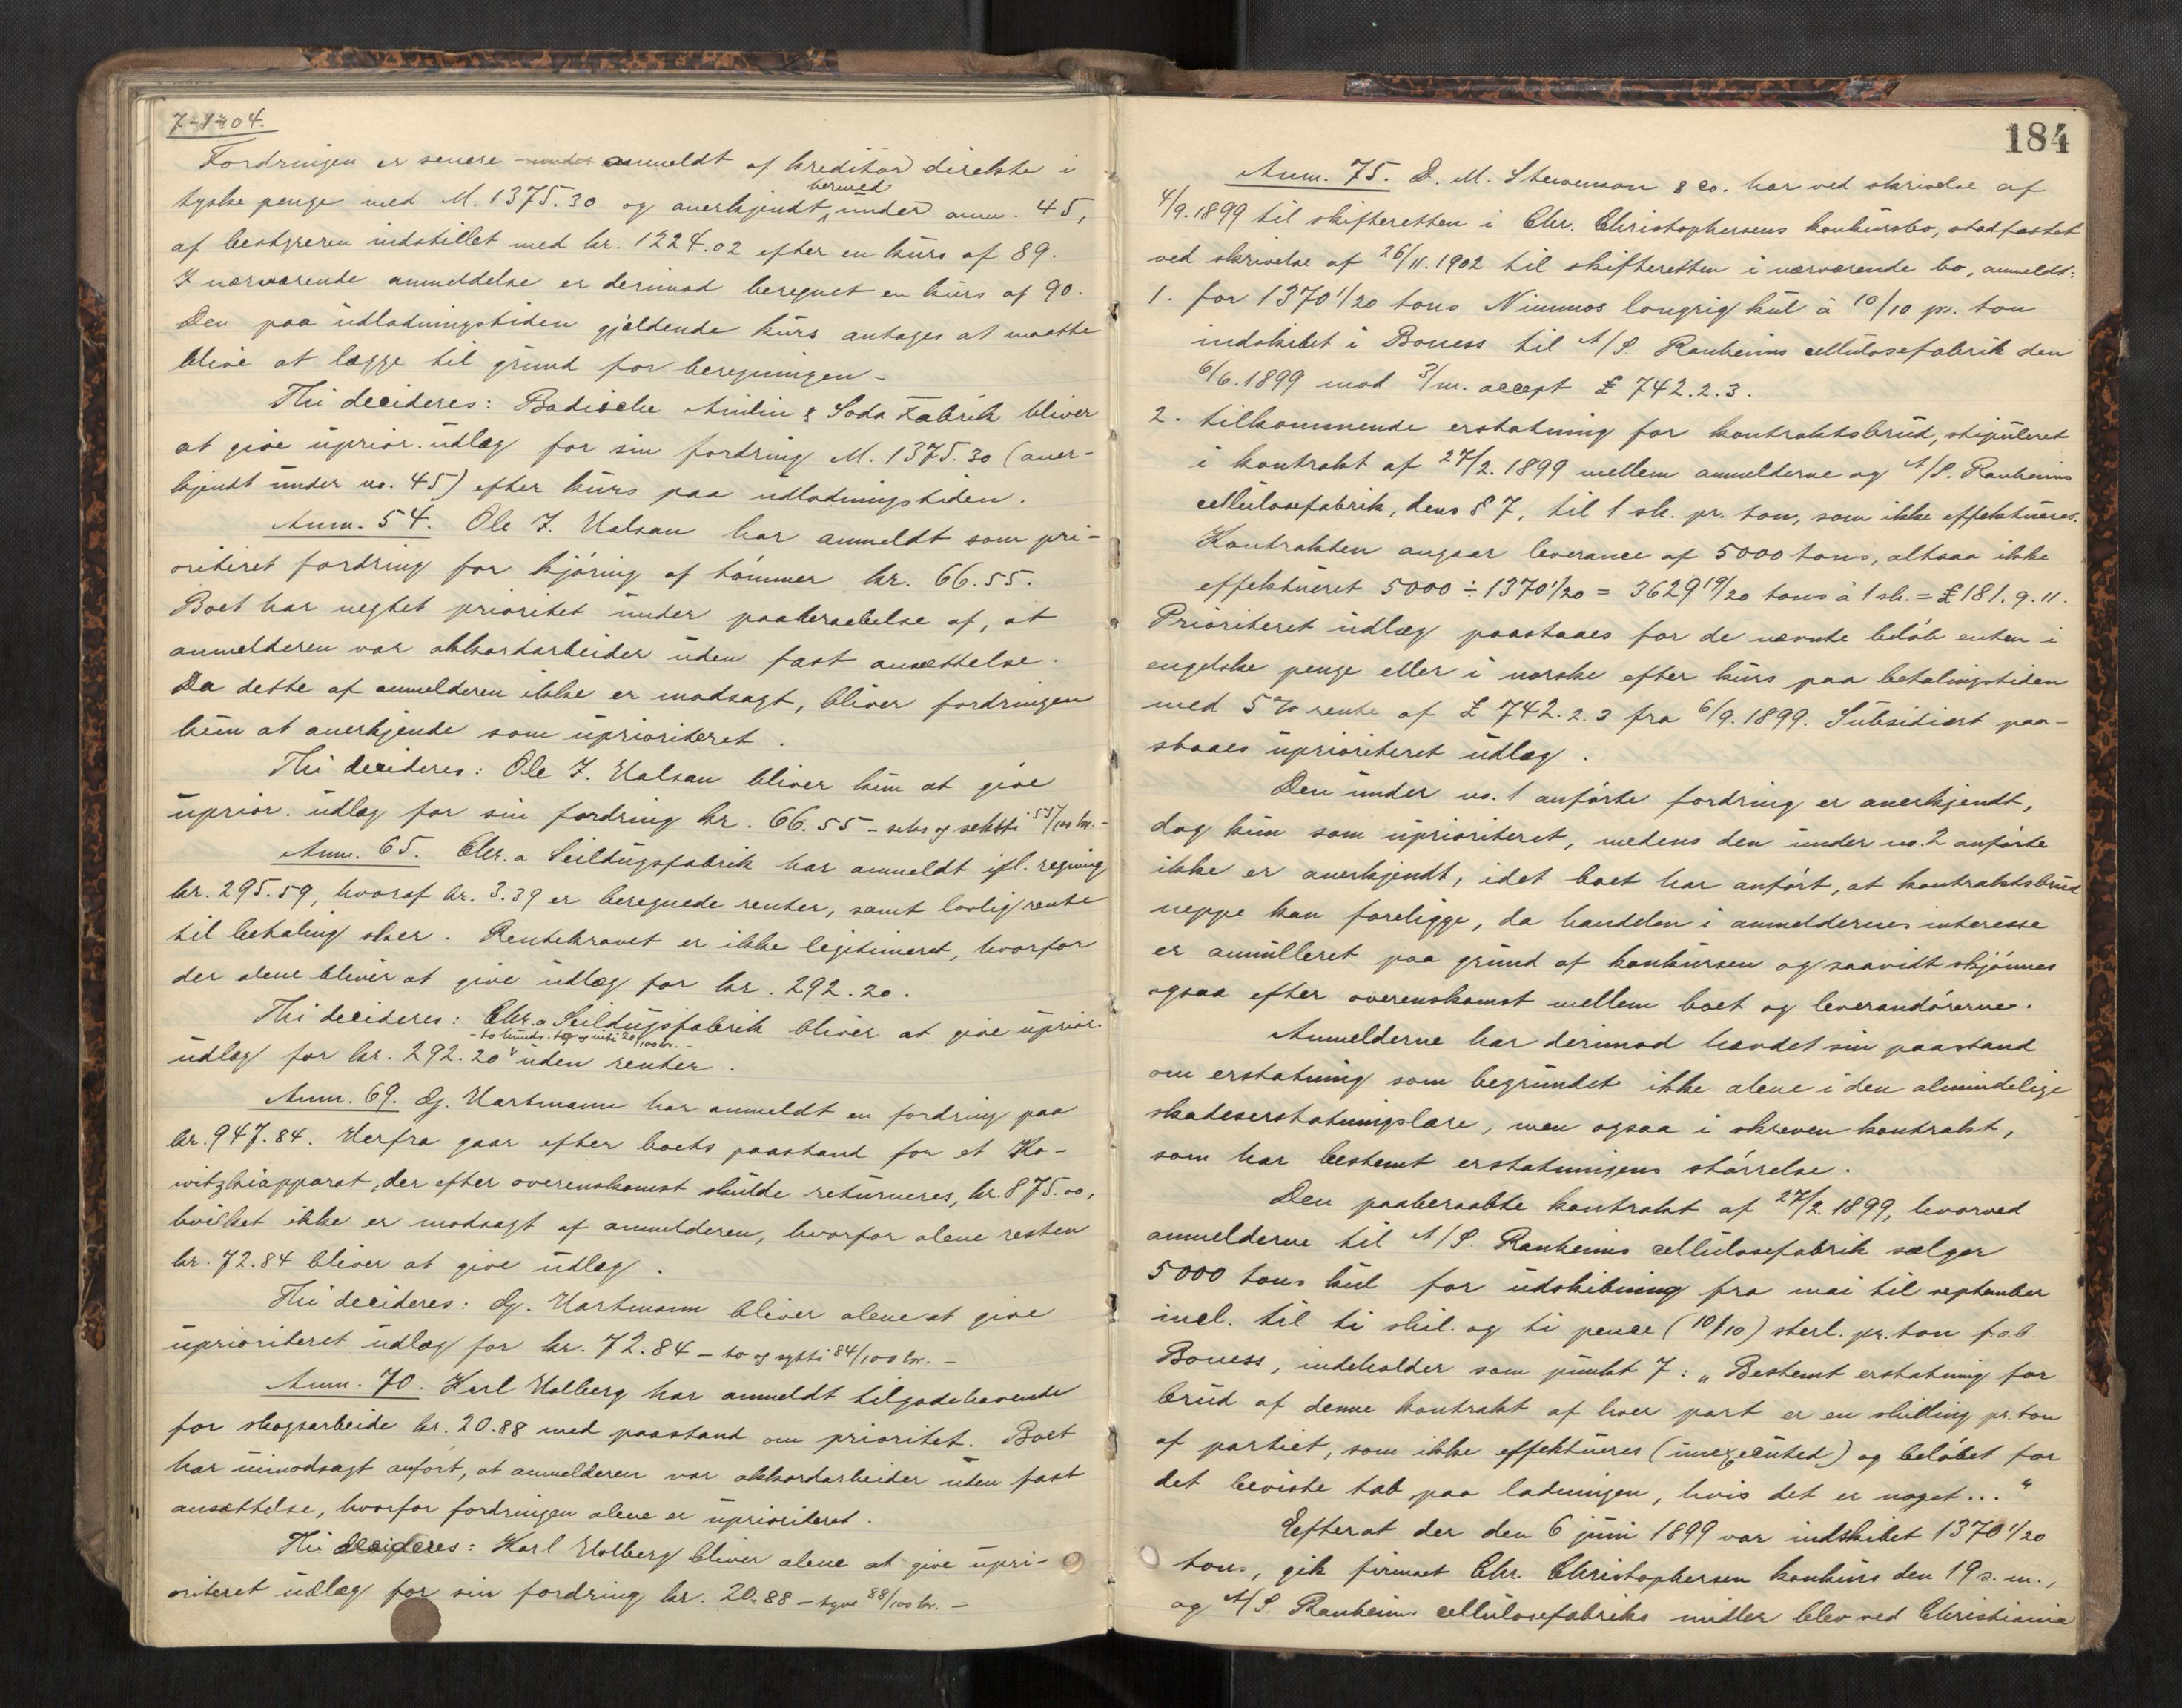 7-1-04.
Fordringen er senere anmeldt af kreditor direkte i
tyske penge med M. 1375.30 og anerkjendt hermed under anm. 45,
af bestyreren indstillet med kr. 1224.02 efter en kurs af 89.
I nærværende anmeldelse er derimod beregnet en kurs af 90.
Den paa udlodningstiden gjældende kurs antages at maatte
blive at lægge til grund for beregningen -
Thi decideres: Badische Anilin & Soda Fabrik bliver
at give uprior. udlæg for sin fordring M. 1375.30 (aner-
kjendt under no. 45) efter kurs paa udlodningstiden.
Anm. 54. Ole J. Halsan har anmeldt som pri-
oriteret fordring for kjöring af tömmer kr. 66.55.
Boet har negtet prioritet under paaberaabelse af, at
anmelderen var akkordarbeider uden fast ansættelse.
Da dette af anmelderen ikke er modsagt, bliver fordringen
kun at anerkjende som uprioriteret.
Thi decideres: Ole J. Halsan bliver kun at give
uprior. udlæg for sin fordring kr. 66.55 - seks og seksti 55/100 kr. -
Anm. 65. Chr.a Seildugsfabrik har anmeldt ifl. regning
kr. 295.59, hvoraf kr. 3.39 er beregnede renter, samt lovlig rente
til betaling sker. Rentekravet er ikke legitimeret, hvorfor
der alene bliver at give udlæg for kr. 292.20.
Thi decideres: Chr.a Seildugsfabrik bliver at give uprior.
- to hundr. to og niti 20/100 kr. -
udlæg for kr. 292.20 uden renter.
Anm. 69. Hartmann har anmeldt en fordring paa
kr. 947.84. Herfra gaar efter boets paastand for et Ko-
witzkiapparat, der efter overenskomst skulde returneres, kr. 875.00,
hvilket ikke er modsagt af anmelderen, hvorfor alene resten
kr. 72.84 bliver at give udlæg.
Thi decideres: Hartmann bliver alene at give
uprioriteret udlæg for kr. 72.84 - to og sytti 84/100 kr. -
Anm. 70. Karl Holberg har anmeldt tilgodehavende
for skogsarbeide kr. 20.88 med paastand om prioritet. Boet
har uimodsagt anfört, at anmelderen var akkordarbeider uden fast
ansættelse, hvorfor fordringen alene er uprioriteret.
Thi decideres: Karl Holberg bliver alene at give upri-
oriteret udlæg for sin fordring kr. 20.88 - tyve 88/100 kr. -
184
Anm. 75. D. M. Stevenson & Co. har ved skrivelse af
4/9.1899 til skifteretten i Chr. Christophersens konkursbo, stadfæstet
ved skrivelse af 26/11.1902 til skifteretten i nærværende bo, anmeldt:
1. for 1370 1/20 tons Nimmos longrig kul à 10/10 pr. ton
indskibet i Boness til A/S. Ranheims cellulosefabrik den
6/6.1899 mod 3/m. accept £ 742.2.3.
2. tilkommende erstatning for kontraktsbrud, stipuleret
i kontrakt af 27/2.1899 mellem anmelderne og A/S. Ranheims
cellulosefabrik, dens § 7, til 1 sh. pr. ton, som ikke effektueres.
Kontrakten angaar leverance af 5000 tons, altsaa ikke
effektueret 5000 ÷ 1370 1/20 = 3629 19/20 tons à 1 sh. = £ 181.9.11.
Prioriteret udlæg paastaaes for de nævnte belöb enten i
engelske penge eller i norske efter kurs paa betalingstiden
med 5% rente af £ 742.2.3 fra 6/9.1899. Subsidiært paa-
staaes uprioriteret udlæg.
Den under no. 1 anförte fordring er anerkjendt,
dog kun som uprioriteret, medens den under no. 2 anförte
ikke er anerkjendt, idet boet har anfört, at kontraktsbrud
neppe kan foreligge, da handelen i anmeldernes interesse
er annulleret paa grund af konkursen og saavidt skjönnes
ogsaa efter overenskomst mellem boet og leverandörerne.
Anmelderne har derimod hævdet sin paastand
om erstatning som begrundet ikke alene i den almindelige
skadeserstatningslære, men ogsaa i skreven kontrakt,
som har bestemt erstatningens störrelse.
Den paaberaabte kontrakt af 27/2.1899, hvorved
anmelderne til A/S. Ranheims cellulosefabrik sælger
5000 tons kul for udskibning fra mai til september
incl. til ti skil. og ti pence (10/10) sterl. pr. ton f.o.b.
Boness, indeholder som punkt 7: „Bestemt erstatning for
brud af denne kontrakt af hver part er en shilling pr. ton
af partiet, som ikke effektueres (unexecuted) og belöbet for
det beviste tab paa ladningen, hvis det er noget..."
Efterat der den 6 juni 1899 var indskibet 1370 1/20
tons, gik firmaet Chr. Christophersen konkurs den 19 s. m.,
og A/S. Ranheims cellulosefabriks midler blev ved Christiania